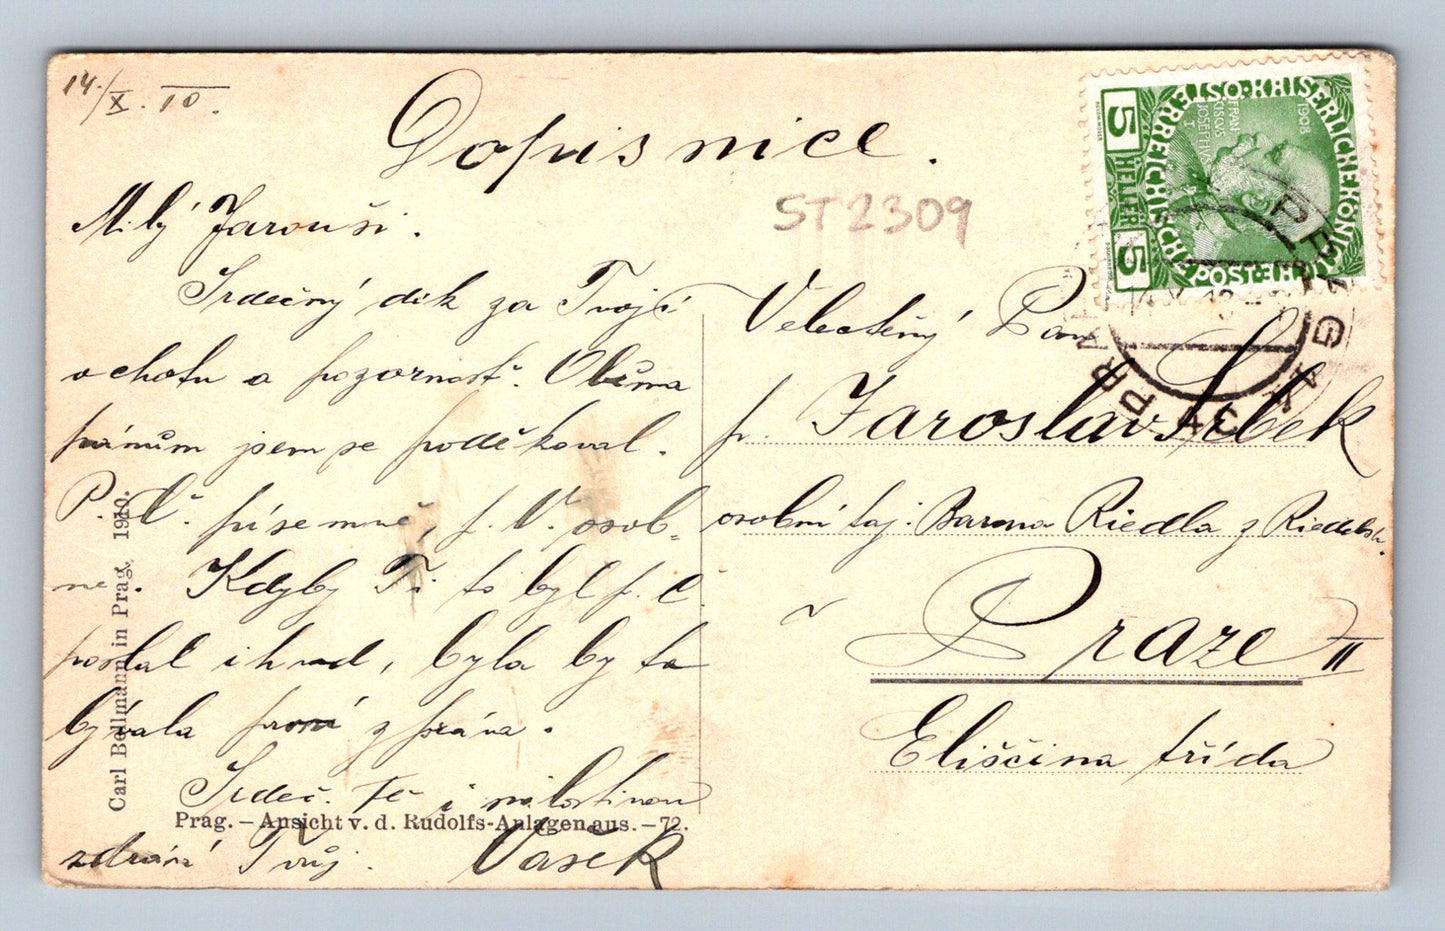 14./X. 10.
Dopisnice.
ST2309
Milý Jarouši.
Srdečný dík za Tvoji
ochotu a pozornost. Oběma
pánům jsem se poděkoval.
P. Č. písemně, p. V. osob=
ně. Kdyby Ti to byl p. Č.
poslal ihned, byla by to
bývala první zpráva.
Srdeč. Tě i
zdraví Tvůj. Vašek
Velectěný Pan
p. Jaroslav Srbek
osobní taj. Barona Riedla z
v Praze II
Eliščina třída
Carl Bellmann in Prag. 1910.
Prag. – Ansicht v. d. Rudolfs-Anlagen aus. – 72.
KAISERLICHE KÖNIGLICHE ÖSTERREICHISCHE POST
1908
FRANCISCUS JOSEPHUS I
5 HELLER 5
PRAG
PRAHA